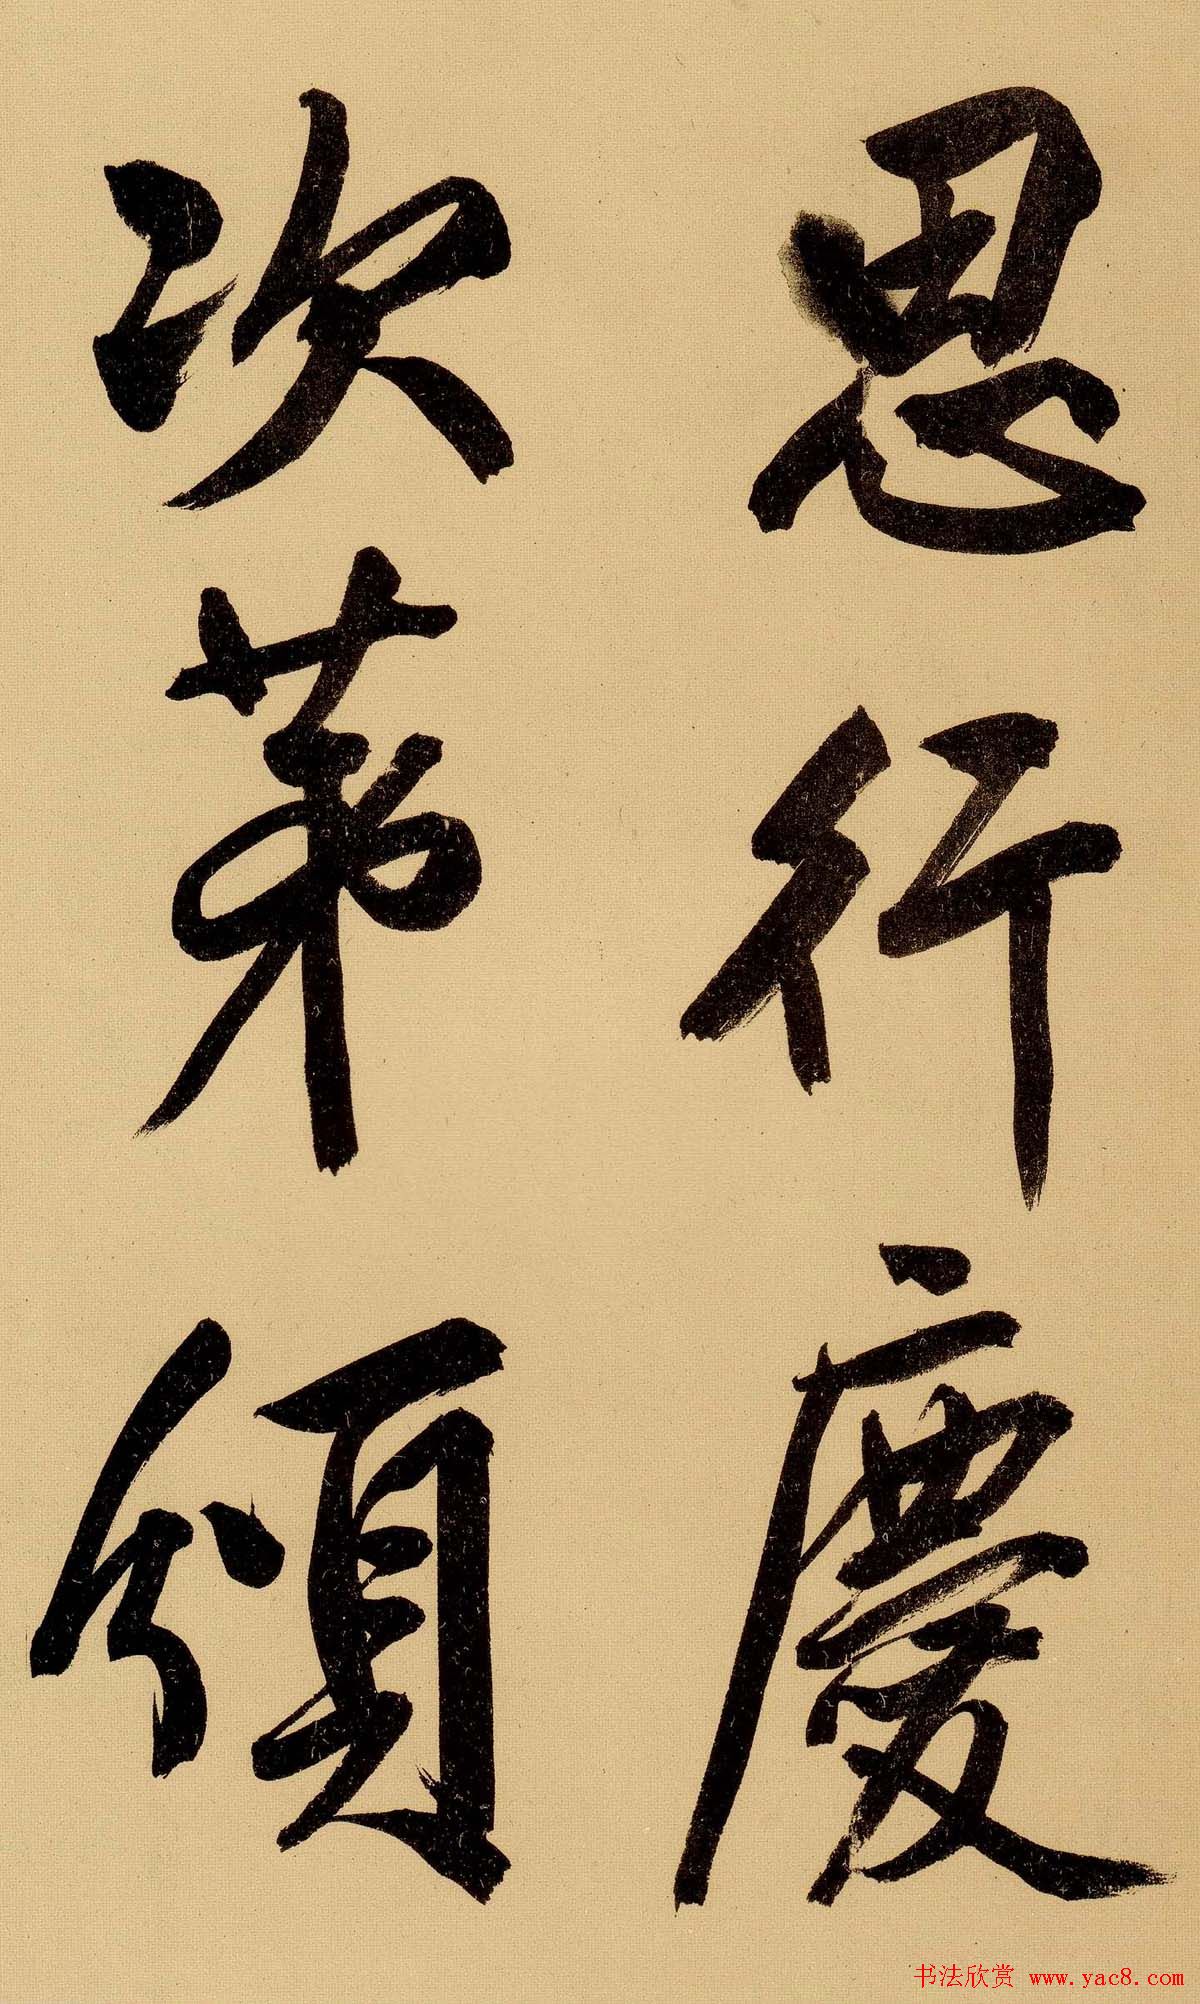 恩行慶
次第頒
书法欣赏 www.yac8.com